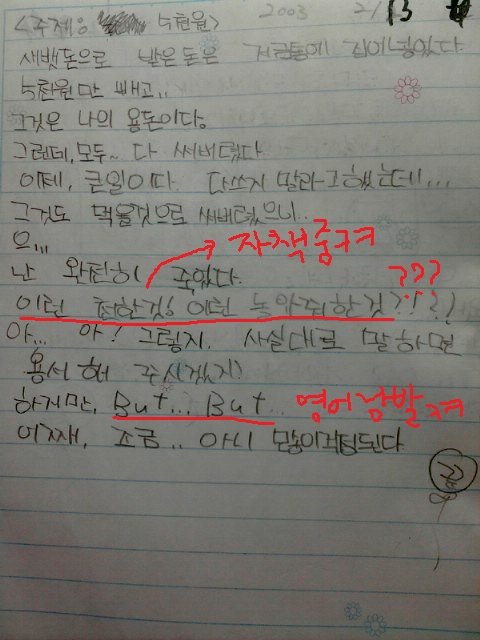 <주제: 5천원> 2003 2/13
새뱃돈으로 받은 돈은 저금통에 집어넣었다
5천원만 빼고..
그것은 나의 용돈이다.
그런데, 모두~ 다 써버렸다
이제, 큰일이다. 다쓰지 말라고 했는데...
그것도 먹을것으로 써버렸으니..
으...
자책중ㅋㅋ
난 완전히 죽었다.
???
이런 천한것! 이런 놈 아주 한 것?!??
아... 아! 그렇지. 사실대로 말하면
용서 해 주시겠지?
하지만, But... But..
영어남발ㅋㅋ
어째, 조금.. 아니 많이 걱정된다
끝